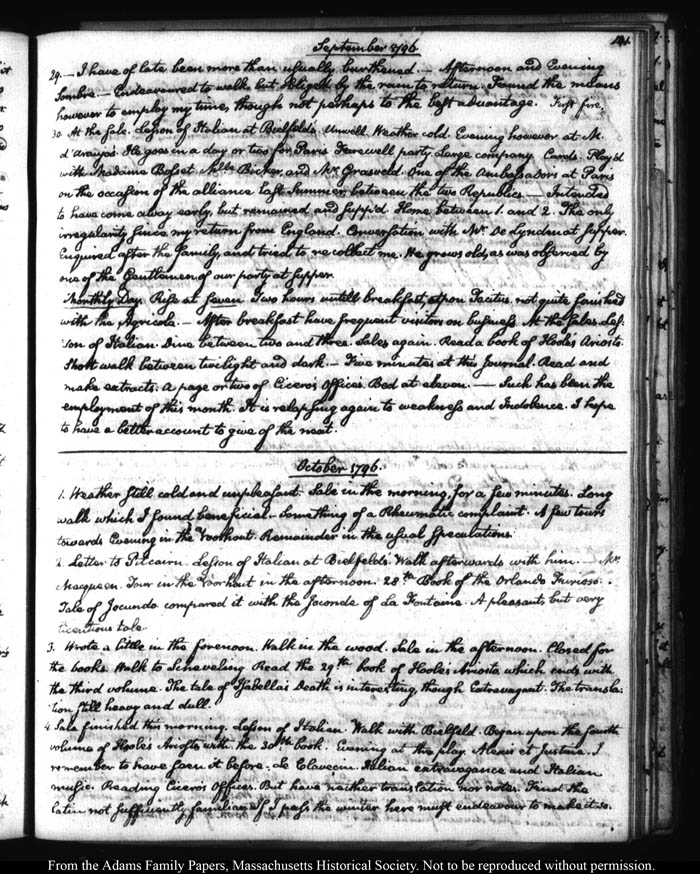 September 1796
141.
29. — I have of late been more than usually burthened. — Afternoon and Evening
Sombre — Endeavoured to walk, but obliged by the rain to return. Found the means
however to employ my time, though not perhaps to the best advantage. First fire.
30. At the sale. Lesson of Italian at Bielfeld's. Unwell. Weather cold. Evening however at M.
d'Araujo's. He goes in a day or two for Paris. Farewell party. Large company. Cards. Play'd
with Madame Bosset Mlle. Bicker, and Mr. Grasveld. One of the Ambassadors at Paris
on the occasion of the alliance last Summer between the two Republics. — Intended
to have come away early, but remained and supp'd. Home between 1. and 2. The only
irregularity since my return from England. Conversation with Mr. De Lynden at supper.
Enquired after the family, and tried to recollect me. He grows old, as was observed by
one of the Gentlemen of our party at supper.
Monthly Day. Rise at seven. Two hours untill breakfast, upon Tacitus, not quite finished
with the Agricola. — After breakfast have frequent visitors on business. At the sales. Les-
son of Italian. Dine between two and three. Sales again. Read a book of Hoole's Ariosto.
Short walk between twilight and dark. — Five minutes at this Journal. Read and
make extracts. A page or two of Cicero's Offices. Bed at eleven. — Such has been the
employment of this month. It is relapsing again to weakness and Indolence. I hope
to have a better account to give of the next.
October 1796.
1. Weather still cold and unpleasant. Sale in the morning, for a few minutes. Long
walk which I found beneficial. Something of a Rheumatic complaint. A few tours
towards Evening in the Voorhout. Remainder in the usual speculations.
2. Letter to Pitcairn. Lesson of Italian at Bielfeld's. Walk afterwards with him. — Mr.
Macqueen. Tour in the Voorhout in the afternoon. 28th Book of the Orlando Furioso.
Tale of Jocundo compared it with the Joconde of La Fontaine. A pleasant, but very
licentious tale.
3. Wrote a little in the forenoon. Walk in the wood. Sale in the afternoon. Closed for
the books. Walk to Scheveling. Read the 29th book of Hoole's Ariosto, which ends with
the third volume. The tale of Isabella's Death is interesting, though Extravagant. The transla-
tion still heavy and dull.
4. Sale finished this morning. Lesson of Italian. Walk with Bielfeld. Began upon the fourth
volume of Hoole's Ariosto with the 30th book. Evening at the play. Alexis et Justine. I
remember to have seen it before. Le Clavecin. Italian extravagance and Italian
music. Reading Cicero's Offices. But have neither translation nor notes. Find the
Latin not sufficiently familiar. If I pass the winter here must endeavour to make it so.
From the Adams Family Papers, Massachusetts Historical Society. Not to be reproduced without permission.